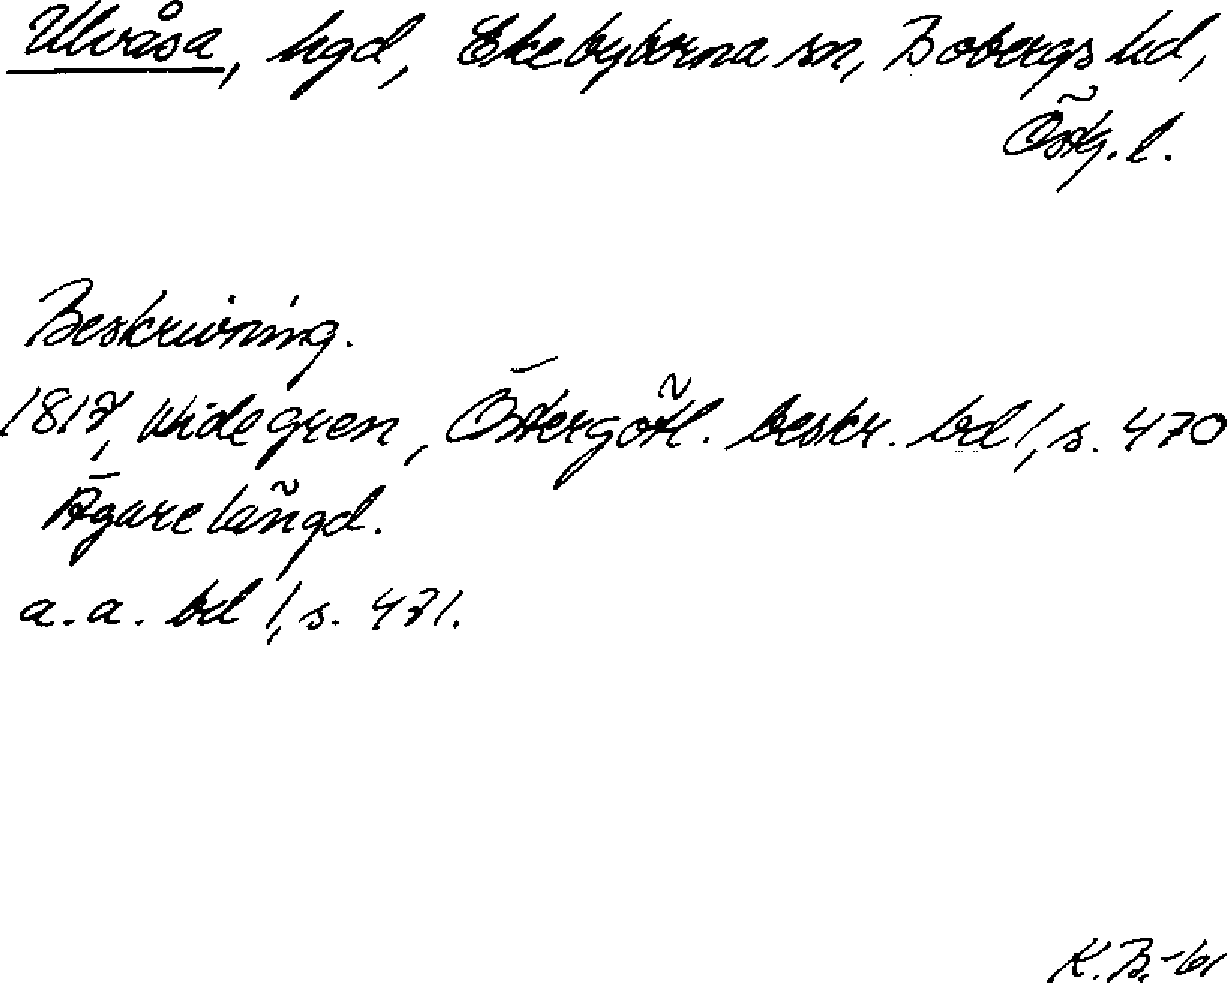 Ulvåsa, hgd, Ekebyborna sn, Bobergs hd,
Östg. l.
Beskrivning.
1817, Widegren, Östergötl. beskr. bd 1, s. 470
Ägarelängd.
a. a. bd 1, s. 471.
K. B. -61